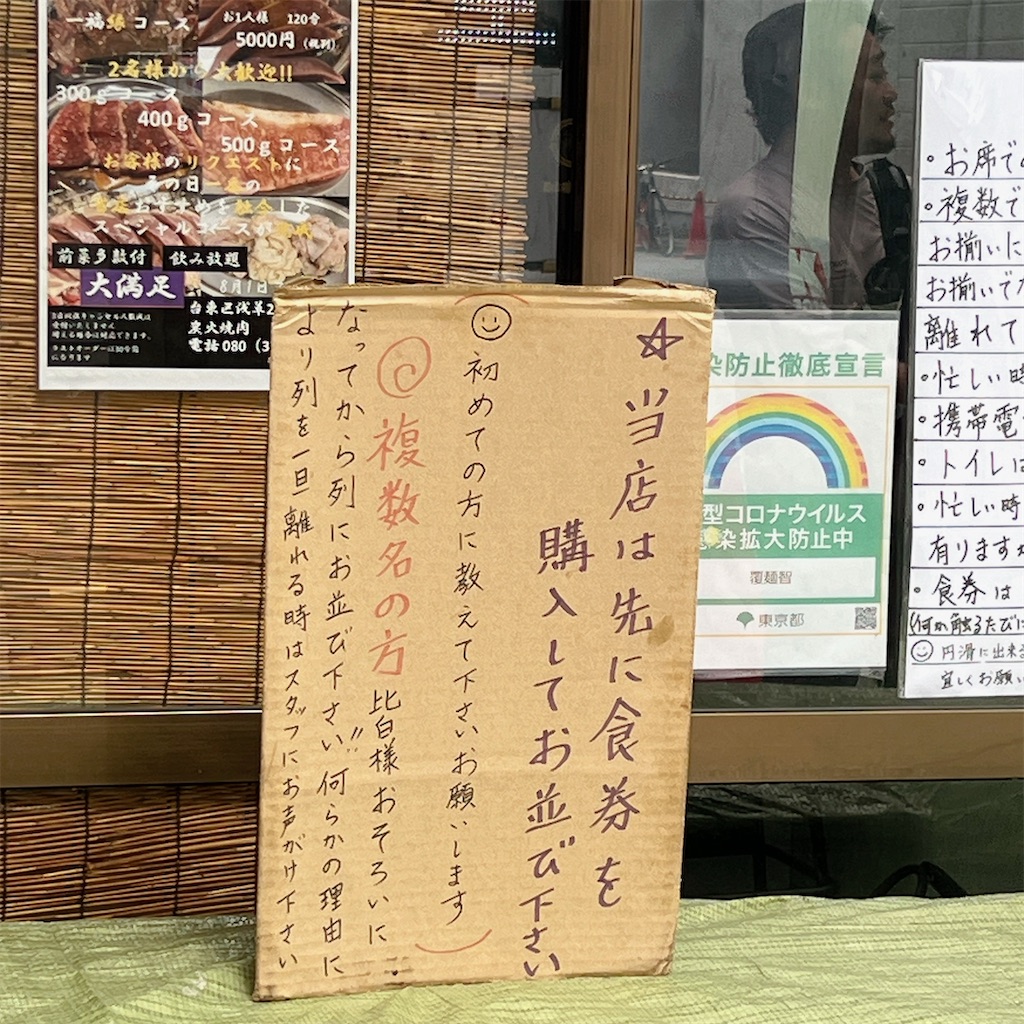 一福縁コース
お1人様 120分
5000円(税別)
2名様から大歓迎!!
300gコース
400gコース
500gコース
お客様のリクエストに
その日
おすすめを
スペシャルコースが
前菜多数付 飲み放題
大満足
8月1日
台東区浅草2
炭火焼肉
電話080(3
☆当店は先に食券を
購入してお並び下さい
(☺初めての方に教えて下さいお願いします)
◎複数名の方 皆様おそろいに
なってから列にお並び下さい!!何らかの理由に
より列を一旦離れる時はスタッフにお声がけ下さい
染防止徹底宣言
型コロナウイルス
感染拡大防止中
覆麺智
東京都
・お席で
・複数で
お揃いに
お揃いで
離れて
・忙しい時
・携帯電
・トイレは
・忙しい時
有りますが
・食券は
(何か触るたびに
☺円滑に出来る
宜しくお願い